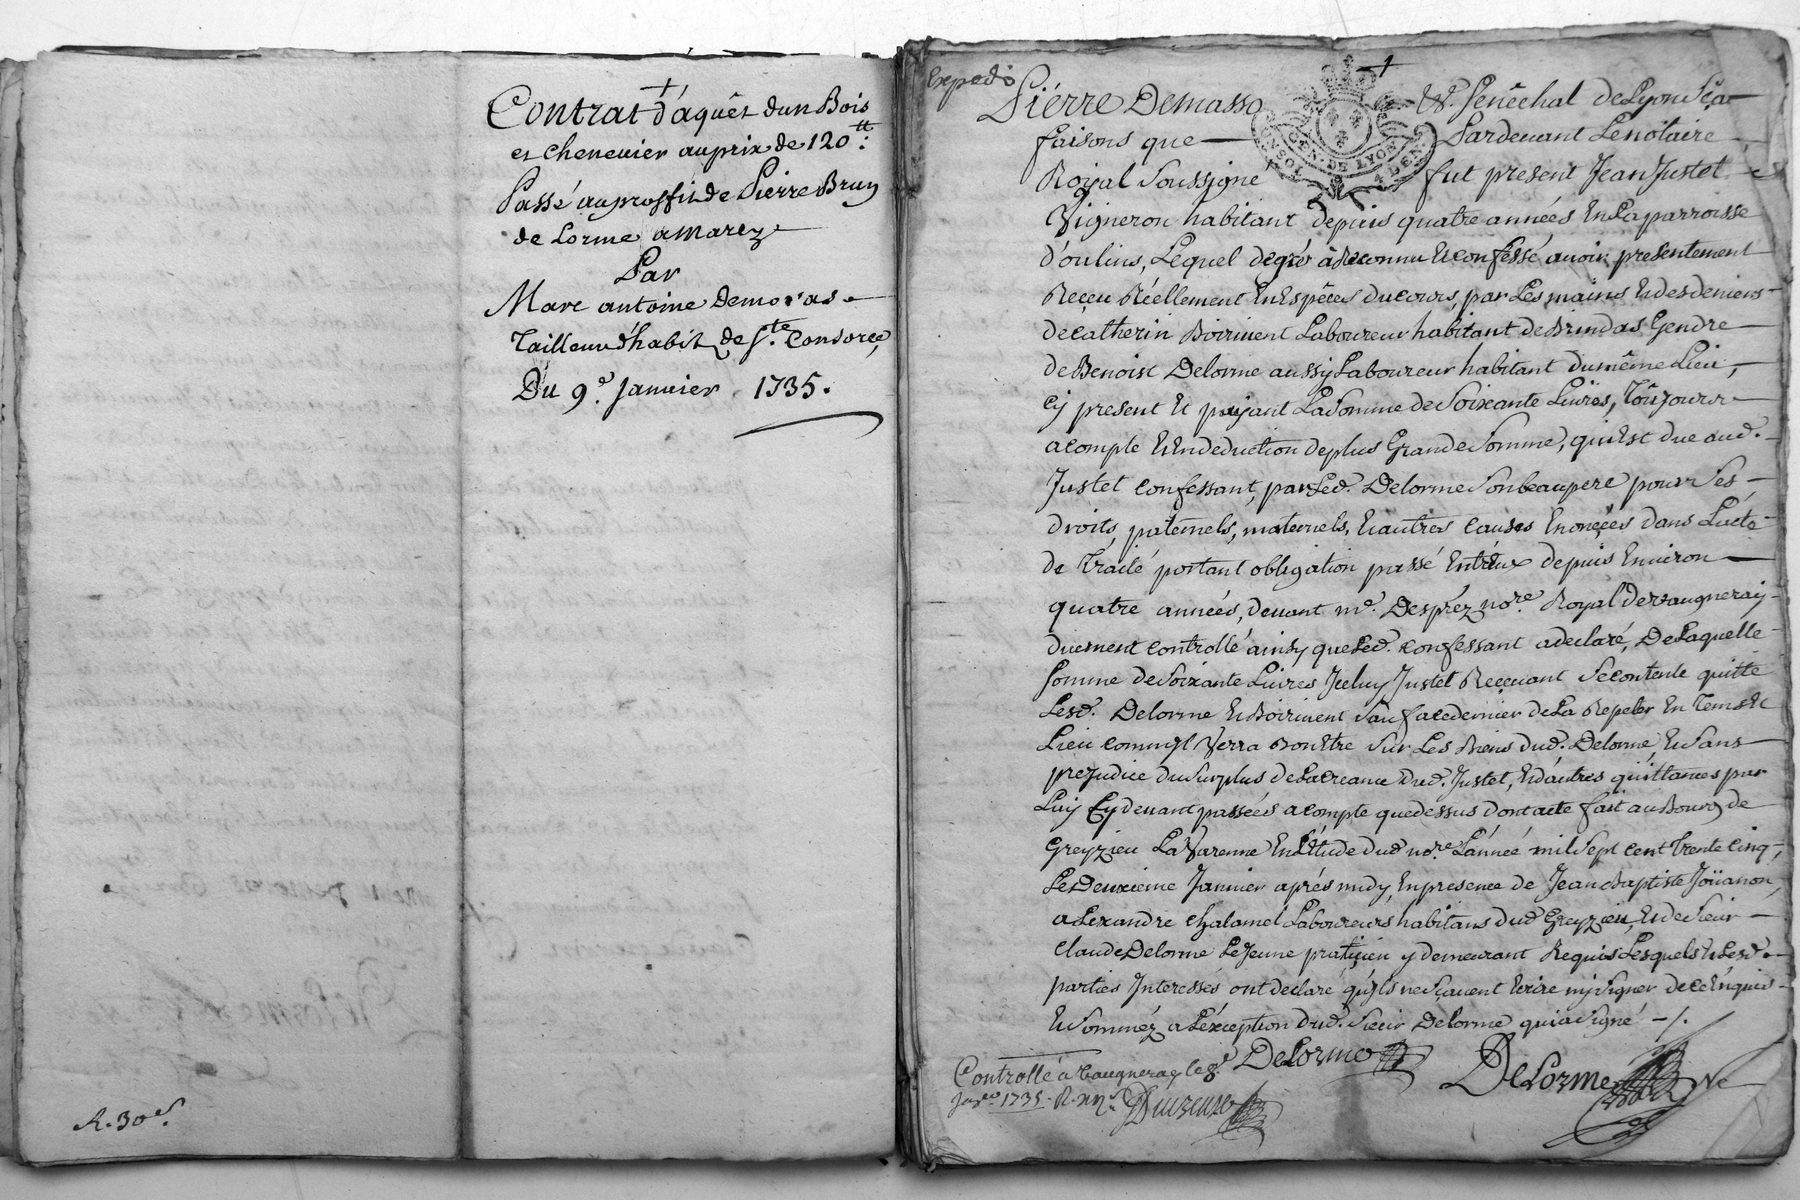 Contrat d'aquêt dun Bois
et chenevier au prix de 120 ₶.
Passé au proffit de Pierre Brun
de Lorme a Marcy
Par
Marc antoine Demoras
Tailleur d'habit de Ste. Consorce
Du 9e. Janvier 1735.
R. 30 s.
Expedié
Piérre Demasso Sr. Senêchal de Lyon Sça
faisons que Pardevant Le notaire
GEN. DE LYON
Royal Soussigné fut present Jean Justet
Vigneron habitant depuis quatre années En La parroisse
d'oulins, Lequel degré à Reconnu Et confessé avoir presentement
Reçeu Réellement En Espêces du cours, par Les mains Et des deniers
de Catherin Boirivent Laboureur habitant de Brindas Gendre
de Benoist Delorme aussy Laboureur habitant du même Lieu,
cy present Et payant La Somme de Soixante Livres, Toûjours
a compte Et En deduction de plus Grande Somme, qui Est due aud.
Justet confessant, par Led. Delorme Son beaupere pour Ses
droits, paternels, maternels, Et autres causes Enonçées dans L'acte
de Traité portant obligation passé Entr'eux depuis Environ
quatre années, devant me. Desprêz nore. Royal de Vaugneray
duement controllé ainsy que Led. confessant a declaré, De Laquelle
Somme de Soixante Livres Iceluy Justet Reçevant Se contente quitte
Lesd. Delorme Et Boirivent Sauf a ce dernier de La Repeter En Tems Et
Lieu comm'il Verra Bon Etre Sur Les Biens dud. Delorme, Et Sans
prejudice du Surplus de La creance dud. Justet, Et d'autres quittances par
Luy Cy devant passées a compte que dessus dont acte fait au Bourg de
Greyzieu La Varenne En L'Etude dud. nore. L'année mil Sept cent Trente Cinq,
Le Deuxieme Janvier aprés midy, En presence de Jean Baptiste Joüanon,
alexandre Chalamel Laboureurs habitans dud. Greyzieu, Et de Sieur
Claude Delorme Le Jeune pratiçien y demeurant Requis Lesquels Et Lesd.
parties Interessés ont declaré qu'ils ne Sçavent Ecrire ny Signer de ce Enquis
Et Sommêz a L'éxception dud. Sieur Delorme qui a Signé
DeLorme DeLorme
Controllé à Vaugneray le 8e
Janer. 1735. R.